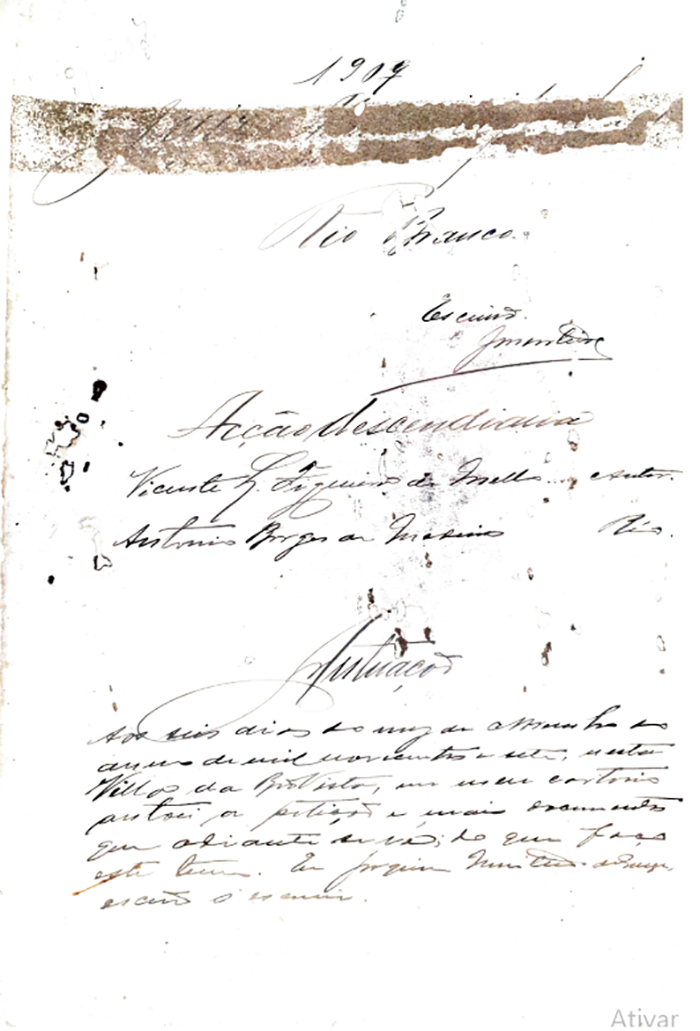 1907
Rio Branco.
Escrivão
JMonteiro
Acção descendiaria
Vicente L. Figueira de Mello Autor.
Antonio Borges de Réo.
Autuação
Aos seis dias do mez de do
anno de mil novecentos e sete, nesta
Villa da BôaVista, em meu cartorio
autoei a petição e mais documentos
que adiante se vê; do que faço
este termo. Eu Joaquim
escrivão o escrevi.
Ativar